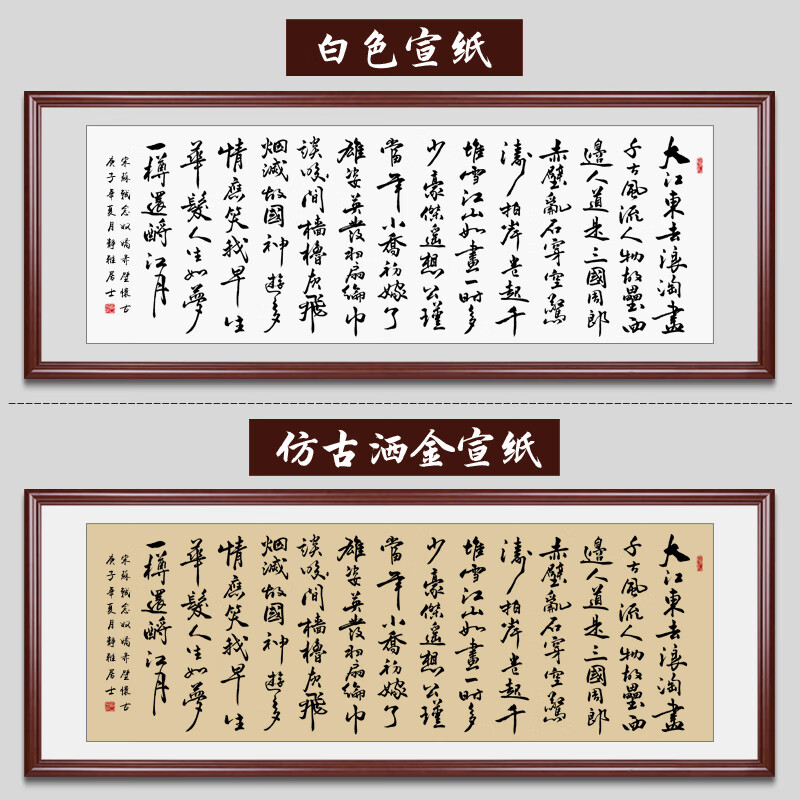 白色宣纸
大江東去浪淘盡
千古風流人物故壘西
邊人道是三國周郎
赤壁亂石穿空驚
濤拍岸卷起千
堆雪江山如畫一時多
少豪傑遙想公瑾
當年小喬初嫁了
雄姿英發羽扇綸巾
談笑間檣櫓灰飛
烟滅故國神遊多
情應笑我早生
華髮人生如夢
一樽還酹江月
宋蘇軾念奴嬌赤壁懷古
庚子年夏月靜雅居士
仿古洒金宣纸
大江東去浪淘盡
千古風流人物故壘西
邊人道是三國周郎
赤壁亂石穿空驚
濤拍岸卷起千
堆雪江山如畫一時多
少豪傑遙想公瑾
當年小喬初嫁了
雄姿英發羽扇綸巾
談笑間檣櫓灰飛
烟滅故國神遊多
情應笑我早生
華髮人生如夢
一樽還酹江月
宋蘇軾念奴嬌赤壁懷古
庚子年夏月靜雅居士